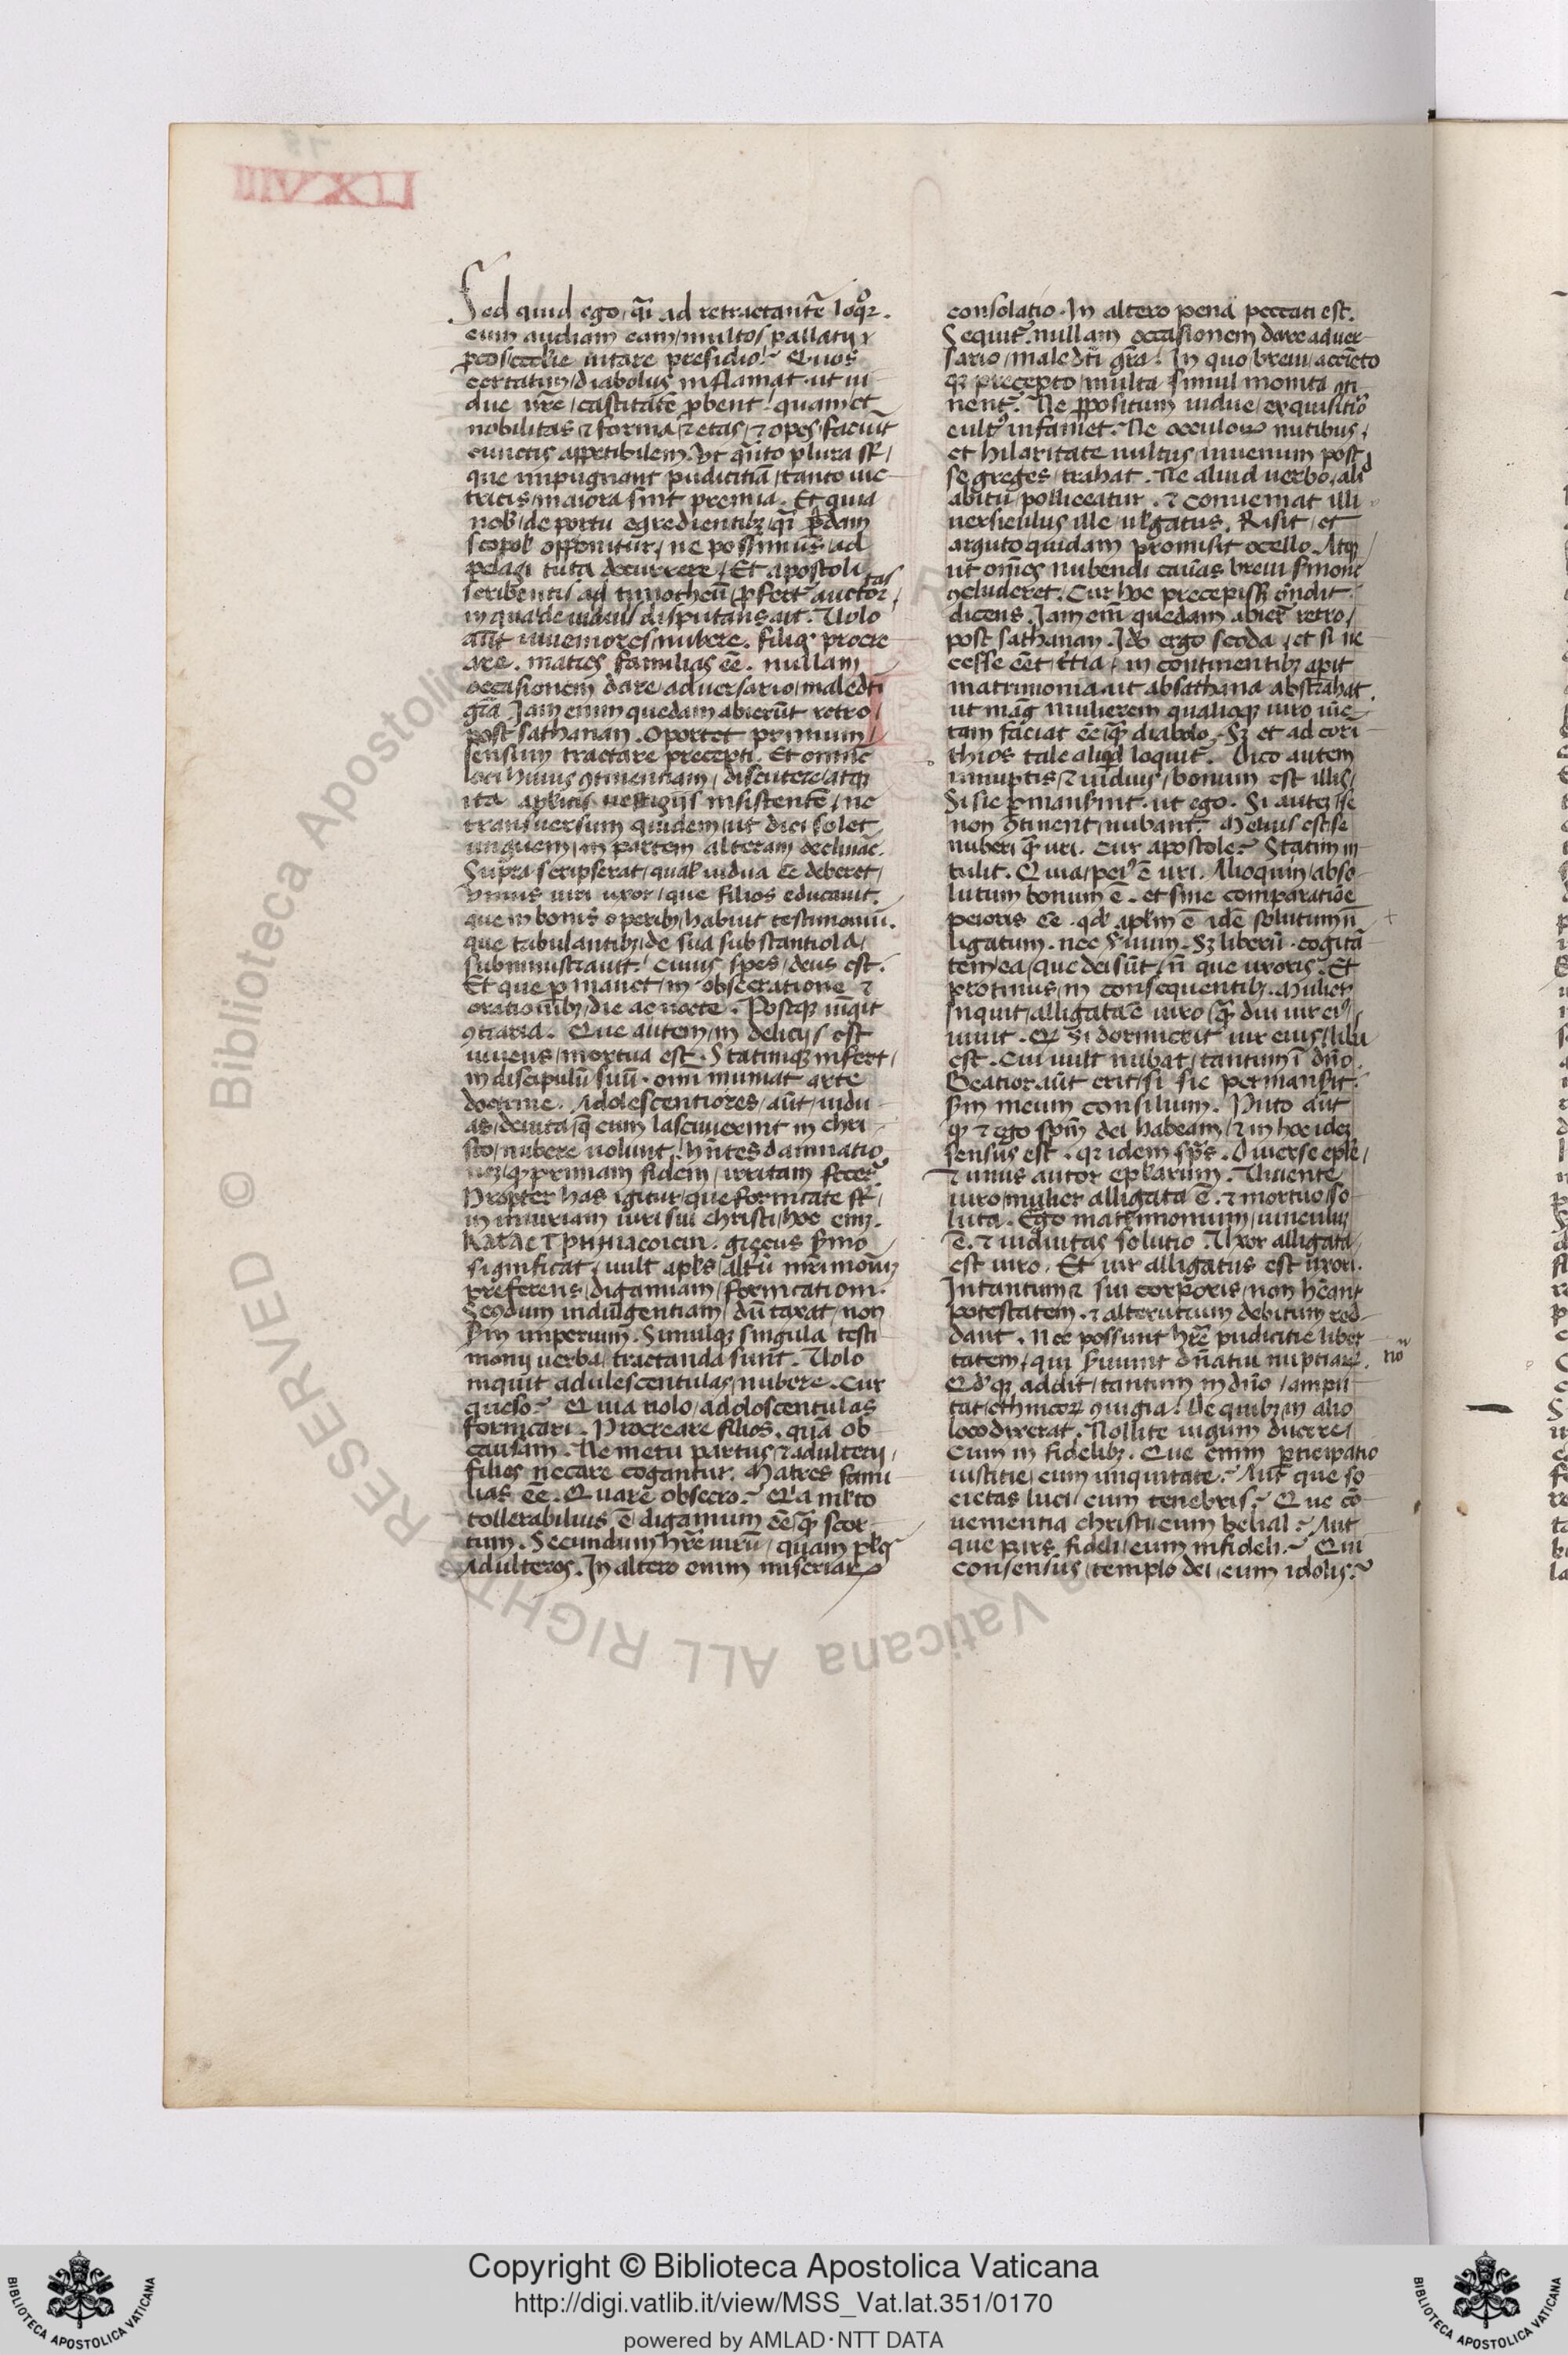 Sed quid ego, qͣi ad retractantē loqͦr.
cum audiam eam/multos pallatij
ꝓcosecclie uitare presidio? Quos
certatim/diabolus inflamat. ut ui-
due nr̄e/castitatē ꝓbent! quam et
nobilitas ⁊ forma/⁊ etas/⁊ opes/faciūt
cunctis appetibilem. Vt qnto plura st/
que impugnant pudicitiā/tanto uic-
tricis/maiora sint premia. Et quia
nob/de portu egredientibꝫ/qͣi q̄dam
scopol opponitur/ne possimus ad
pelagi tuta decurrere/Et apostoli
scribentis ad timotheū/ꝓfert auctor/tas
in qua de uiduis disputans ait. Uolo
aūt iuueniores/nubere. filios procre
are. matres familias eē. nullam
occasionem dare/aduersario/maledti
gr̄a. Jam enim quedam abierūt retro/
post sathanan. Oportet primum/
sensum tractare precepti. Et omne
loci huius ꝯtinentiam/discutere/atqꝫ
ita aplicis uestigijs insistentē/ne
transuersum quidem/ut dici solet
unguem/in partem alteram declinar̄.
Supra scripserat/qual uidua eē deberet/
Vnius uiri uxor/que filios educauit.
que in bonis operibꝫ/habuit testimoniū.
que tabulantibꝫ/de sua substantiola/
subministrauit! cuius spes/deus est.
Et que ꝑmanet/in obsecratione ⁊
orationibꝫ/die ac nocte. Postqꝫ iūgit
ꝯtraria. Que autem/in delicijs est
uiuens/mortua est. Statimqꝫ infert/
in discipulū suū. omi muniat arte
doctrine. Adolescentiores/aūt/uidu-
as/deuita/q̄ cum lasciuierint in chri-
sto/nubere uolunt! hn̄tes damnatio
nē/qꝫ primam fidem/irritam fecer̄.
Propter has igitur/que fornicate st/
in iniuriam uiri sui christi/hoc eniꝫ.
grecus ẜmo
significat/uult apls/altūm mr̄imoniꝫ
preferens/digamiam/fornicationi.
Scōdum indulgentiam/dū taxat/non
ẜm imperium. Simulqꝫ singula testi
monij uerba/tractanda sunt. Uolo
inquit adulescentulas/nubere. Cur
queso? Quia nolo/adoloscentulas
fornicari. Procreare filios. quā ob
causam. Ne metu partus/⁊ adulterij/
filios necare cogantur. Matres fami
lias eē. Quare obsecro? Qͥa mlto
tollerabilius ē/digamum eē/qͣꝫ scor-
tum. Secundum hr̄e uirū/quam plͦs
adulteros. In altero enim miseriaꝝ
consolatio. In altero pena peccati est.
Sequit̄. nullam occasionem dare aduer-
sario/maledcti gr̄a! In quo breui/accincto
qꝫ precepto/multa simul monita ꝯti-
nent̄. Ne ꝓpositum uidue/exquisitio
cultꝰ infamet. Ne occuloꝝ nutibus/
et hilaritate uultus/iuuenum post
se greges/trahat. Ne aliud uerbo/ald
abitu/polliceatur. ⁊ conueniat illi
uersiculus ille/ulgatus. Risit/et
arguto quidam promisit ocello. Atqꝫ/
ut omēs nubendi causas breui ẜmone
ꝯcluderet. Cur hoc precepisset ōndit
dicens. Jam em̄ quedam abier̄ retro/
post sathanan. Jdo ergo scoda/et si ne
cesse eēt/ttia/in continentibꝫ apit
matrimonia. ut absathana abstrahat.
ut mag mulierem qualicqꝫ uiro iūc-
tam faciat eē/qͣꝫ diabolo. Sꝫ et ad cori
thios tale aliqd loquit̄. Dico autem
innuptis/⁊ uiduis/bonum est illis/
Si sic ꝑmanserint. ut ego. Si auteꝫ/se
non ꝯtinent/nubant. Melius est/se
nuberi qͣꝫ uri. Cur apostole? Statim in
tulit. Quia/peiꝰ ē uri. Alioquin/abso-
lutum bonum ē. et sine comparatiōe
peioris eē. qd aplm ē idē solutum n̄
ligatum. nec ẜuum. Sꝫ liberū. cogitā-
tem/ea/que dei sūt/n̄ que uxoris. Et
protinus/in consequentibꝫ. Mulier
Inquit/alligata ē uiro/qͣꝫ diu uir eiꝰ/
uiuit. Qꝫ si dormierit uir eius/liba
est. Cui uult nubat/tantum ī dn̄o.
Beatior aūt erit/si sic permanserit
ẜm meum consilium. Puto aūt
qꝫ ⁊ ego spm̄ dei habeam/⁊ in hoc ideꝫ
sensus est. qꝫ idem sps̄. Diuerse eple/
⁊ unus autor eplarum. Uiuente
uiro/mulier alligata ē. ⁊ mortuo/so-
luta. Ego matrimonium/uinculuꝫ
ē. ⁊ uiduitas solutio. Uxor alligata
est uiro. Et uir alligatus est uxori.
Intantum ⁊ sui corporis/non hēant
potestatem. ⁊ alterutrum debitum red-
dant. Nec possunt hr̄e pudicitie liber
tatem/qui ẜuiunt dn̄atui nuptiaꝝ.
Qdqꝫ addit/tantum in dn̄o/ampu
tat/ethnicoꝝ ꝯiugia! De quibꝫ in alio
loco dixerat. Nollite iugum ducere/
cum in fidelibꝫ. Que enim ꝑticipatio
iustitie/cum iniquitate? Aut que so-
cietas luci/cum tenebris? Que cō-
uenientia christi/cum belial? Aut
que pars fideli/cum infideli? Qui
consensus/templo dei/cum idolis?
Copyright © Biblioteca Apostolica Vaticana
http://digi.vatlib.it/view/MSS_Vat.lat.351/0170
powered by AMLAD·NTT DATA